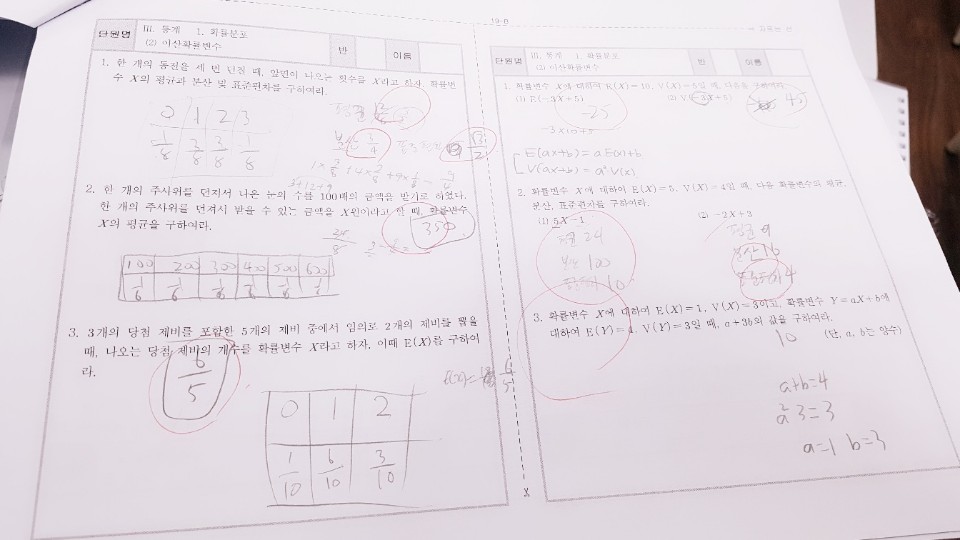 단원명
III. 통계 1. 확률분포
(2) 이산확률변수
반
이름
1. 한 개의 동전을 세 번 던질 때, 앞면이 나오는 횟수를 X라고 하자. 확률변
수 X의 평균과 분산 및 표준편차를 구하여라.
0 1 2 3
1/8 3/8 3/8 1/8
분산 3/4
2. 한 개의 주사위를 던져서 나온 눈의 수를 100배의 금액을 받기로 하였다.
한 개의 주사위를 던져서 받을 수 있는 금액을 X원이라고 할 때, 확률변수
X의 평균을 구하여라.
350
100 200 300 400 500 600
1/6 1/6 1/6 1/6 1/6 1/6
3. 3개의 당첨 제비를 포함한 5개의 제비 중에서 임의로 2개의 제비를 뽑을
때, 나오는 당첨 제비의 개수를 확률변수 X라고 하자. 이때 E(X)를 구하여
라.
6/5
0 1 2
1/10 6/10 3/10
단원명
III. 통계 1. 확률분포
(2) 이산확률변수
반
이름
1. 확률변수 X에 대하여 E(X)=10, V(X)=5일 때, 다음을 구하여라.
(1) E(-3X+5) (2) V(-3X+5)
-25
45
-3×10+5
E(ax+b) = aE(x)+b
V(ax+b) = a²V(x)
2. 확률변수 X에 대하여 E(X)=5, V(X)=4일 때, 다음 확률변수의 평균,
분산, 표준편차를 구하여라.
(1) 5X-1 (2) -2X+3
평균 24
분산 100
표준편차 10
분산 16
표준편차 4
3. 확률변수 X에 대하여 E(X)=1, V(X)=3이고, 확률변수 Y=aX+b에
대하여 E(Y)=4, V(Y)=3일 때, a+3b의 값을 구하여라.
(단, a, b는 양수)
10
a+b=4
a²3=3
a=1 b=3